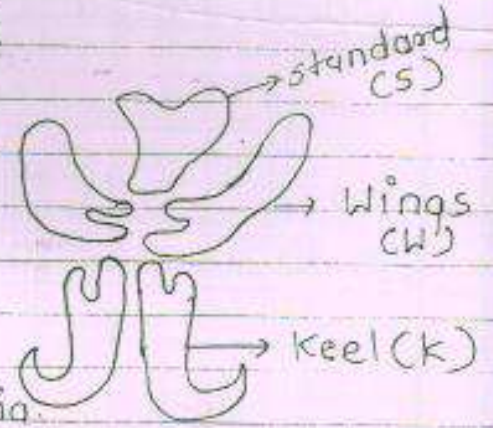 standard
(S)
Wings
(W)
Keel (K)